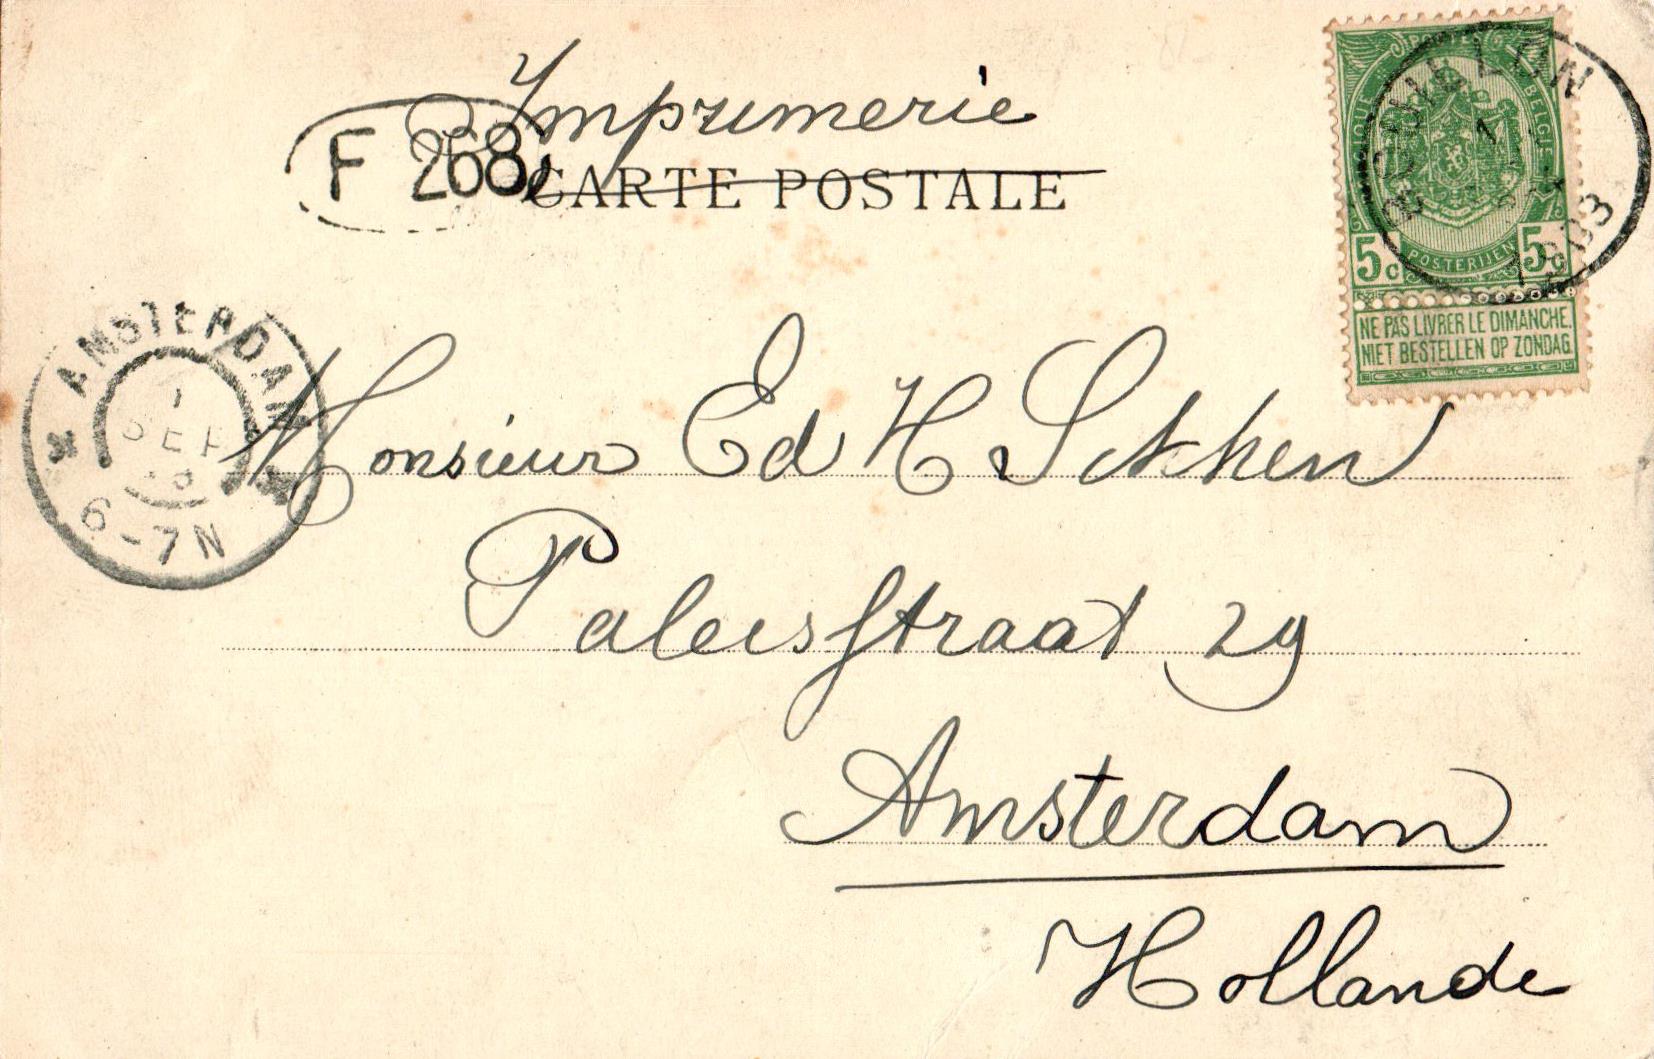 Imprimerie
F 268
CARTE POSTALE
POSTES
BELGIQUE
BOUILLON
1903
5c 5c
POSTERIJEN
NE PAS LIVRER LE DIMANCHE.
NIET BESTELLEN OP ZONDAG.
AMSTERDAM
1
SEP
6-7N
Monsieur Ed H
Paleisstraat 29
Amsterdam
Hollande